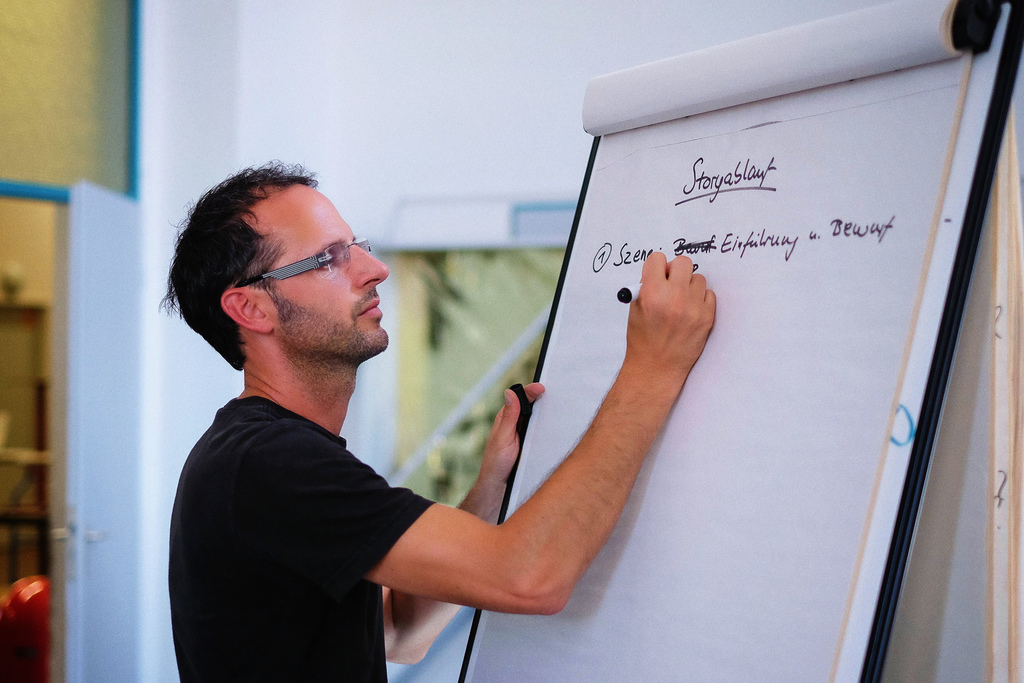 Storyablauf
① Szene: Einführung u. Bewurf